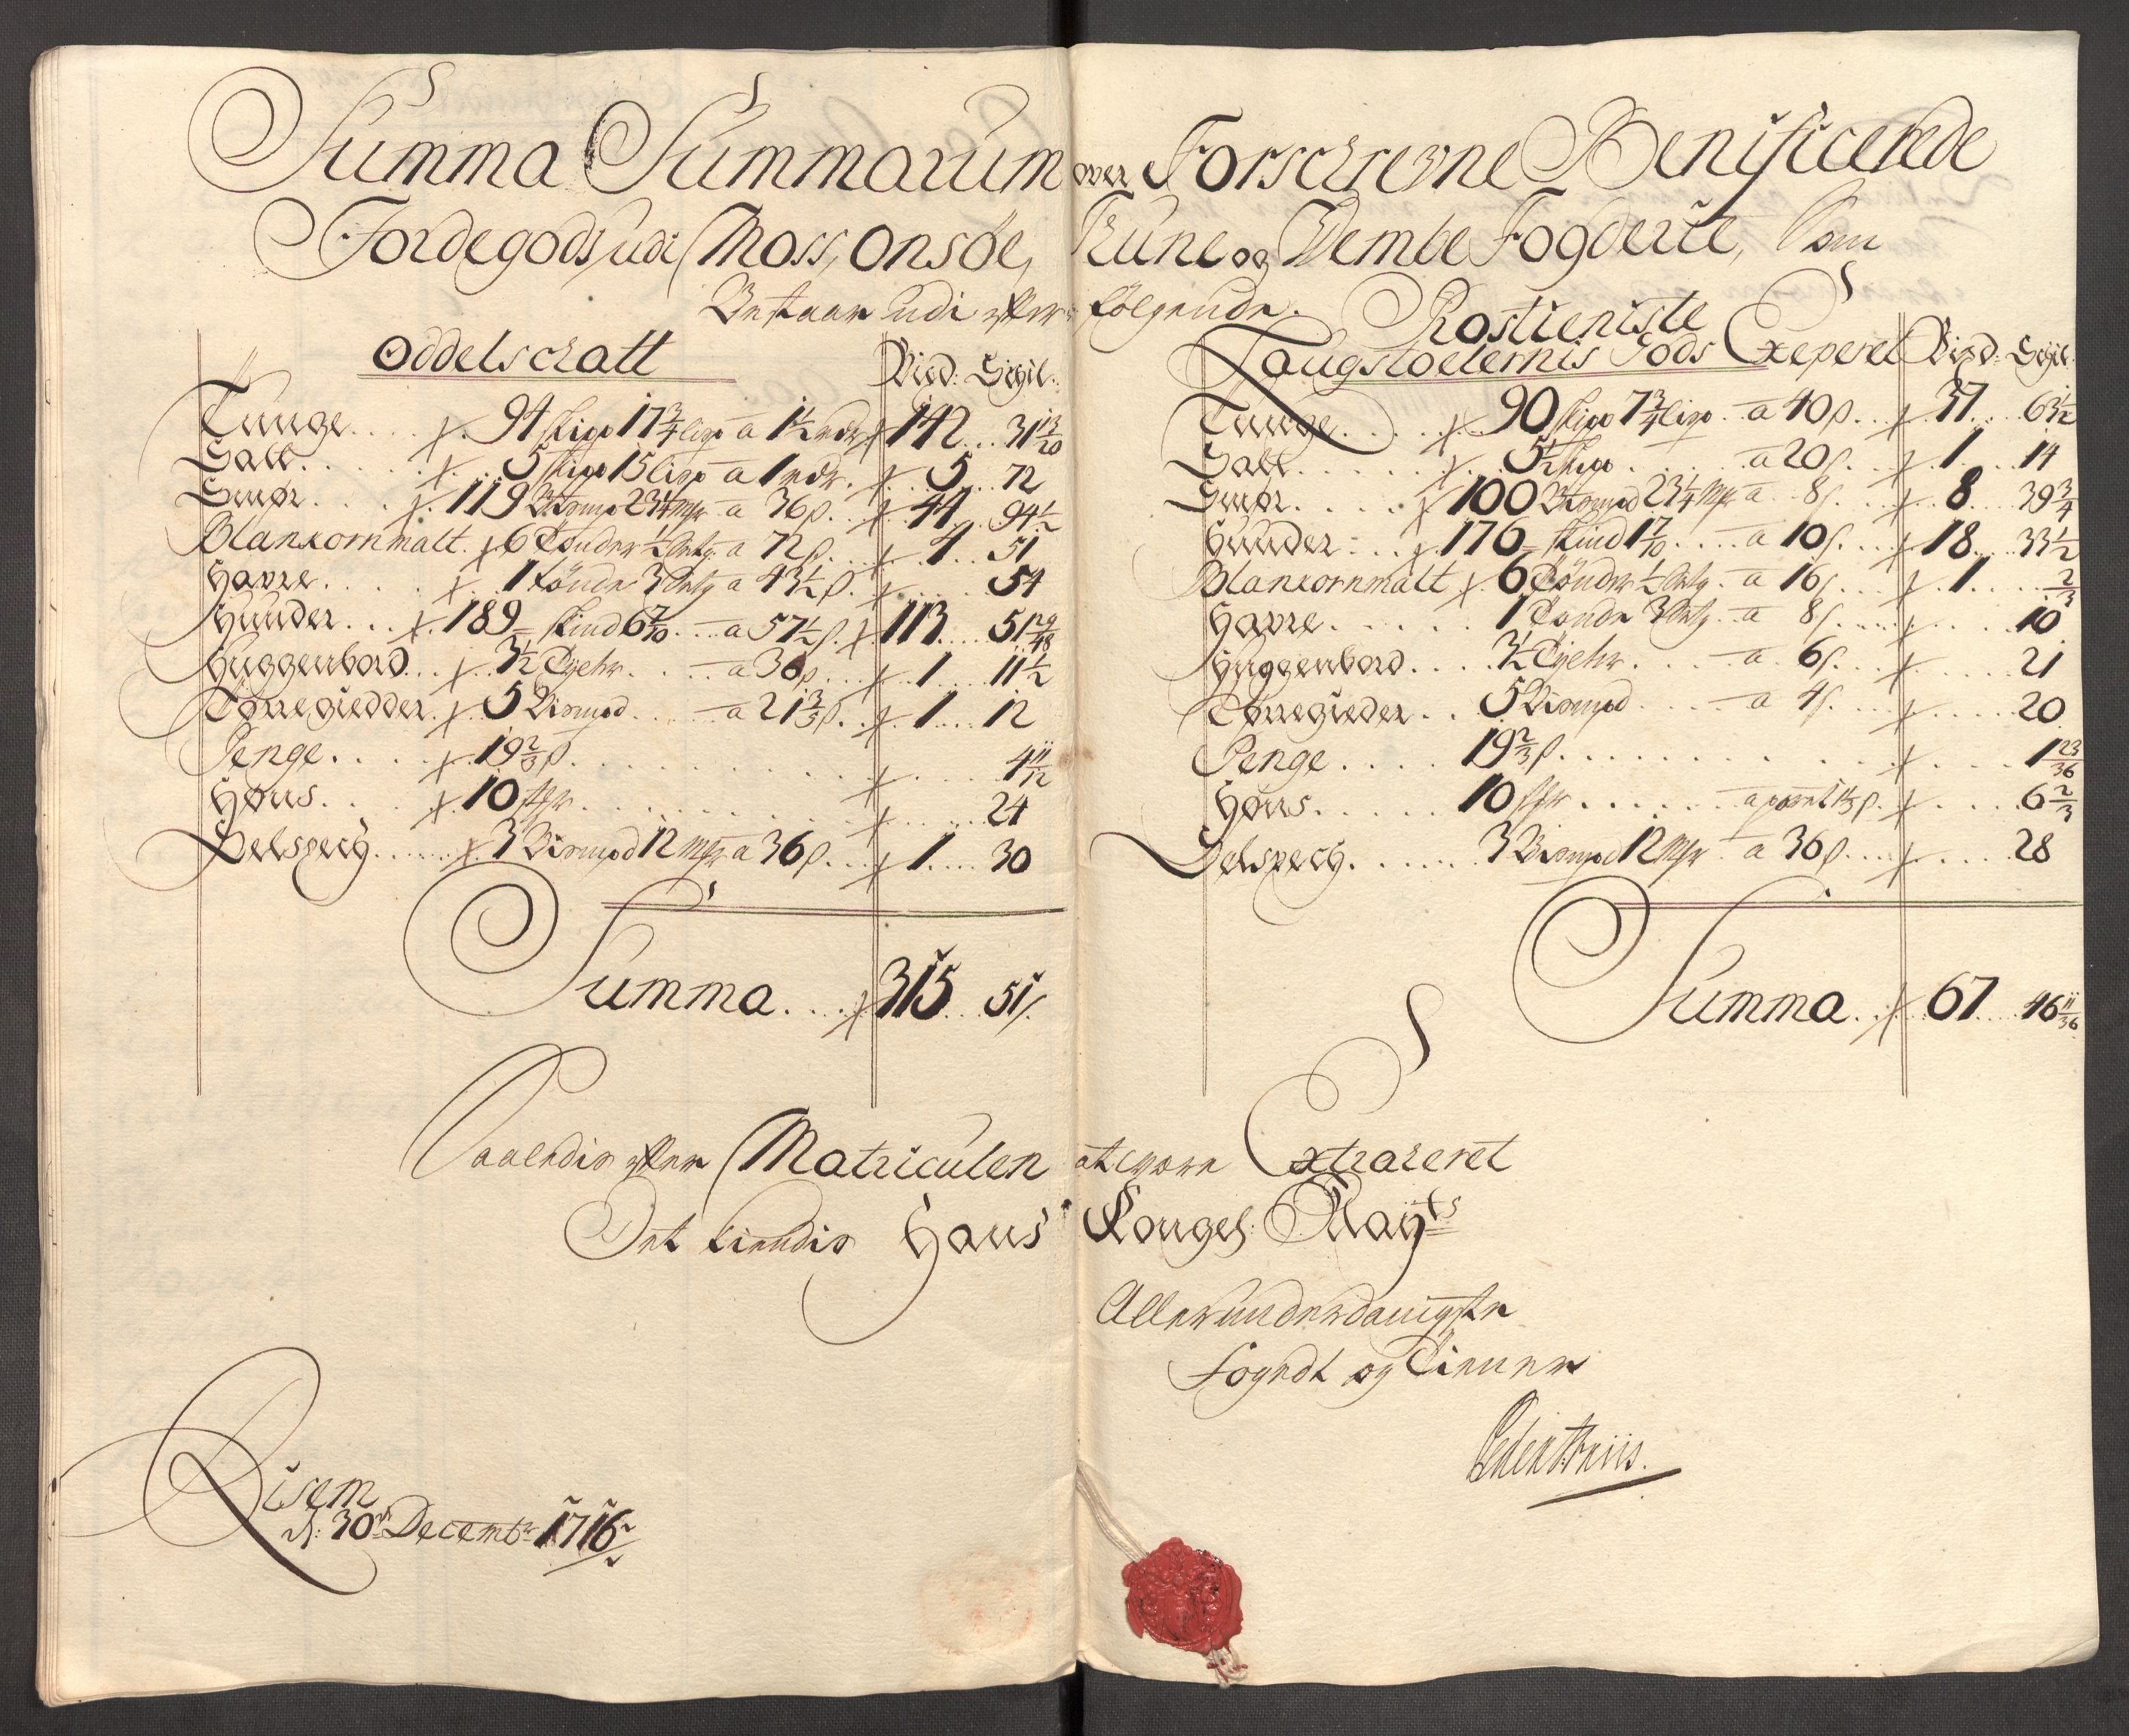 Summa Summarum over Forschrevne Benificerede
Jordegods udi Moss, Onsöe, Tune og Wembe Fogderie, Som
Bestaar udi efterfölgende.
Oddelschatt
Rixd: Schil:
Tunge.... 94 skipp 17 3/4 lispp a 1 1/2 rdr 142... 31 13/20
Salt.... 5 skipp 15 lispp a 1 rdr. 5.. 72
Smör.... 119 Bismpd 23 1/4 Mrk a 36 s.. 44.. 94 1/2
Blankornmalt. 6 Tönder 1/2 Qvrtg a 72 s.. 4.. 51
Havre.... 1 Tönde 3 Qvrtg a 43 1/2 s... 54
Huuder... 189 skind 6 7/10... a 57 1/2 s. 113... 51 29/48
Huggenbord... 3 1/2 Tyltr.... a 36 s... 1... 11 1/2
Törregiedder. 5 Bismpd.... a 21 3/5 s.. 1... 12
Penge.... 19 2/3 s.... 4 11/12
Höns.... 10 str.... 24
Helspech.... 3 Bismpd 12 Mrk a 36 s... 1... 30
Summa.... 315... 51 s.
Rostieniste
Laugstoelernis Gods Exeperet Rixd: Schil:
Tunge.... 90 skipp 7 3/4 lispp. a 40 s... 37... 63 1/2
Salt..... 5 1/2 skipp.... a 20 s... 1... 14
Smör..... 100 Bismpd 23 1/4 Mrk a 8 s... 8... 39 3/4
Huuder... 176 skind 1 7/10.... a 10 s... 18... 33 1/2
Blankornmalt 6 Tönder 1/2 Qvrtg. a 16 s... 1.... 2/3
Havre..... 1 Tönde 3 Qvrtg. a 8 s.... 10
Huggenbord.... 3 1/2 Tyltr.... a 6 s... 21
Törregieder.. 5 Bismpd.... a 4 s.... 20
Penge.... 19 2/3 s.... 1 23/36
Höns..... 10 str..... 6 2/3
Helspech...... 3 Bismpd 12 Mrk a 36 s.... 28
Summa.. 67... 46 11/36
Saaledis efter Matriculen at være Extraheret
Det kiendis Hans Kongel: Mayts
Allerunderdanigste
Fogedt og Tienner
Risem
d: 30te Decembr 1716